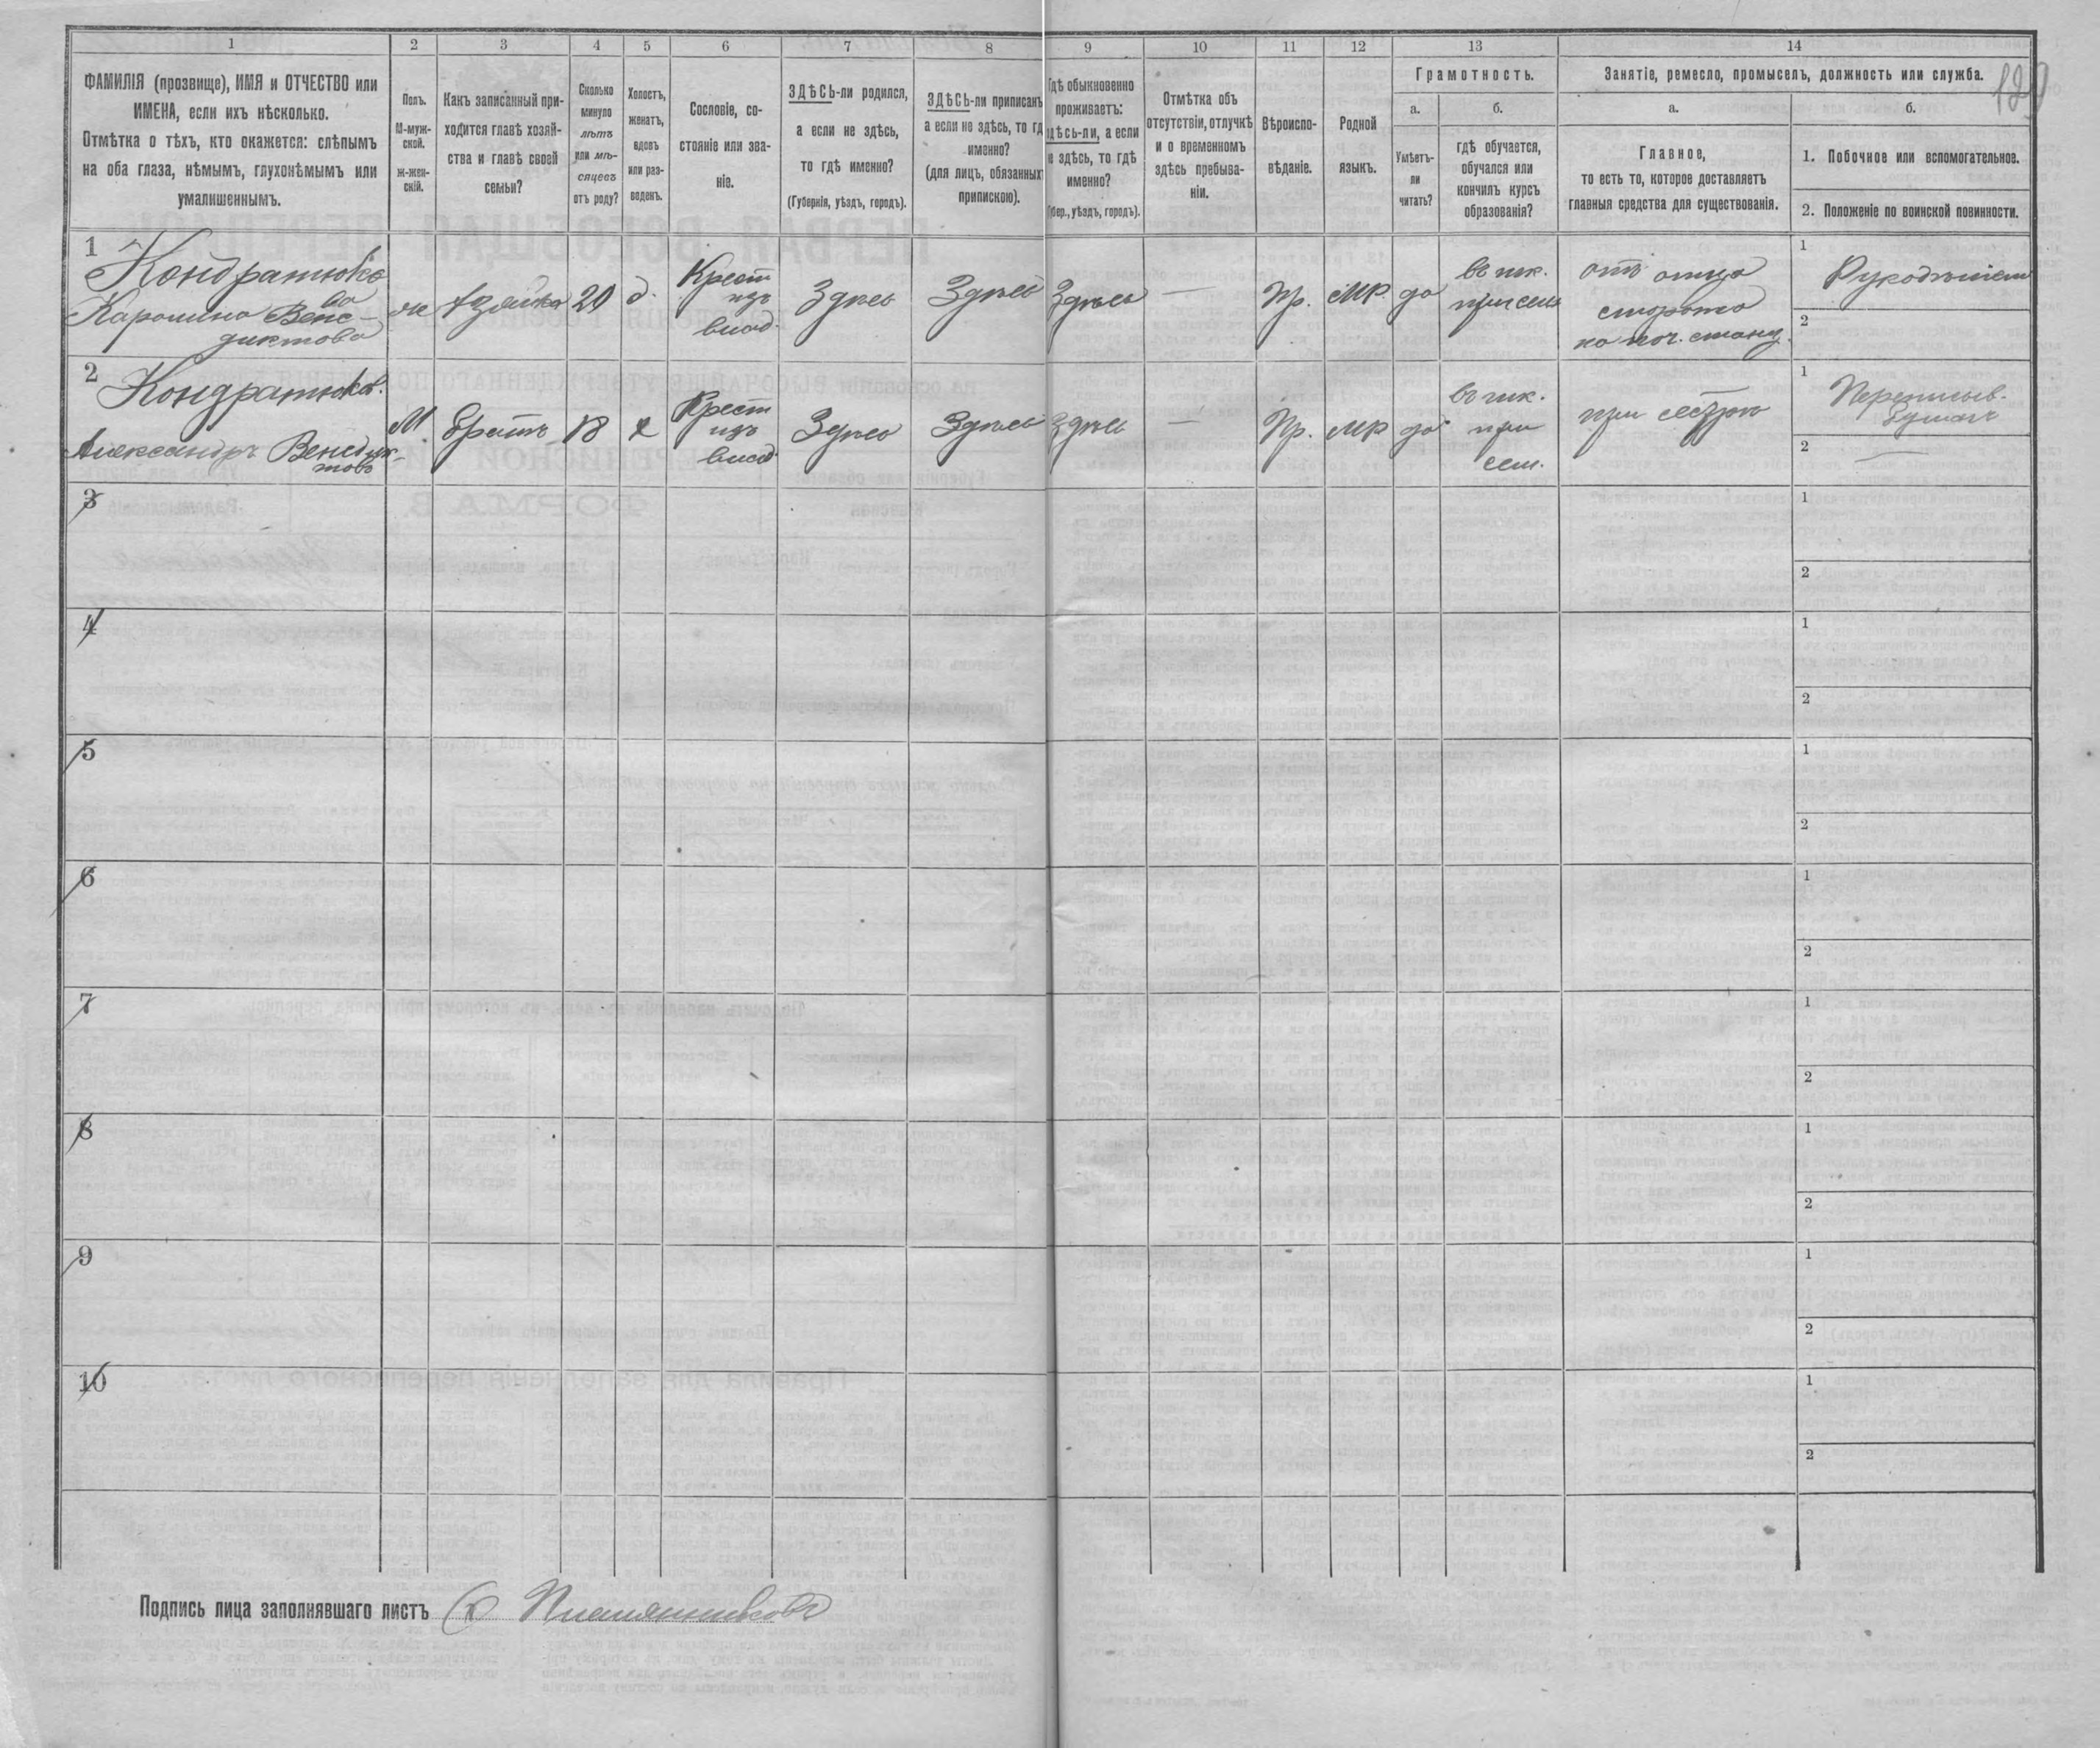 1
2
3
4
5
6
7
8
9
10
11
12
13
14
ФАМИЛІЯ (прозвище), ИМЯ и ОТЧЕСТВО или
ИМЕНА, если ихъ нѣсколько.
Отмѣтка о тѣхъ, кто окажется: слѣпымъ
на оба глаза, нѣмымъ, глухонѣмымъ или
умалишеннымъ.
Полъ.
М-муж-
ской.
ж-жен-
скій.
Какъ записанный при-
ходится главѣ хозяй-
ства и главѣ своей
семьи?
Сколько
минуло
лѣтъ
или мѣ-
сяцевъ
отъ роду?
Холостъ,
женатъ,
вдовъ
или раз-
веденъ.
Сословіе, со-
стояніе или зва-
ніе.
ЗДѢСЬ-ли родился,
а если не здѣсь,
то гдѣ именно?
(Губернія, уѣздъ, городъ).
ЗДѢСЬ-ли приписанъ
а если не здѣсь, то гд
именно?
(для лицъ, обязанныхъ
припискою).
гдѣ обыкновенно
проживаетъ:
здѣсь-ли, а если
не здѣсь, то гдѣ
именно?
Губер., уѣздъ, городъ).
Отмѣтка объ
отсутствіи, отлучкѣ
и о временномъ
здѣсь пребыва-
ніи.
Вѣроиспо-
вѣданіе.
Родной
языкъ.
Грамотность.
а.
б.
Умѣетъ-
ли
читать?
гдѣ обучается,
обучался или
кончилъ курсъ
образованія?
Занятіе, ремесло, промыселъ, должность или служба.
а.
б.
Главное,
то есть то, которое доставляетъ
главныя средства для существованія.
1. Побочное или вспомогательное.
2. Положеніе по воинской повинности.
1
Кондратюкъ
Каролина Вене-
диктова
хозяйка
20
д.
Крест
изъ
влад.
Здѣсь
Здѣсь
Здѣсь
—
Пр.
МР
да
въ шк.
при сел.
отъ отца
сторожа
на поч. станц.
1
Рукодѣліемъ
2
2
Кондратюкъ
Александръ Венедик-
товъ
М
братъ
18
х
Крест
изъ
влад.
Здѣсь
Здѣсь
Здѣсь
—
Пр.
МР
да
въ шк.
при
сел.
при сестрѣ
1
2
—
3
1
2
4
1
2
5
1
2
6
1
2
7
1
2
8
1
2
9
1
2
10
1
2
Подпись лица заполнявшаго листъ